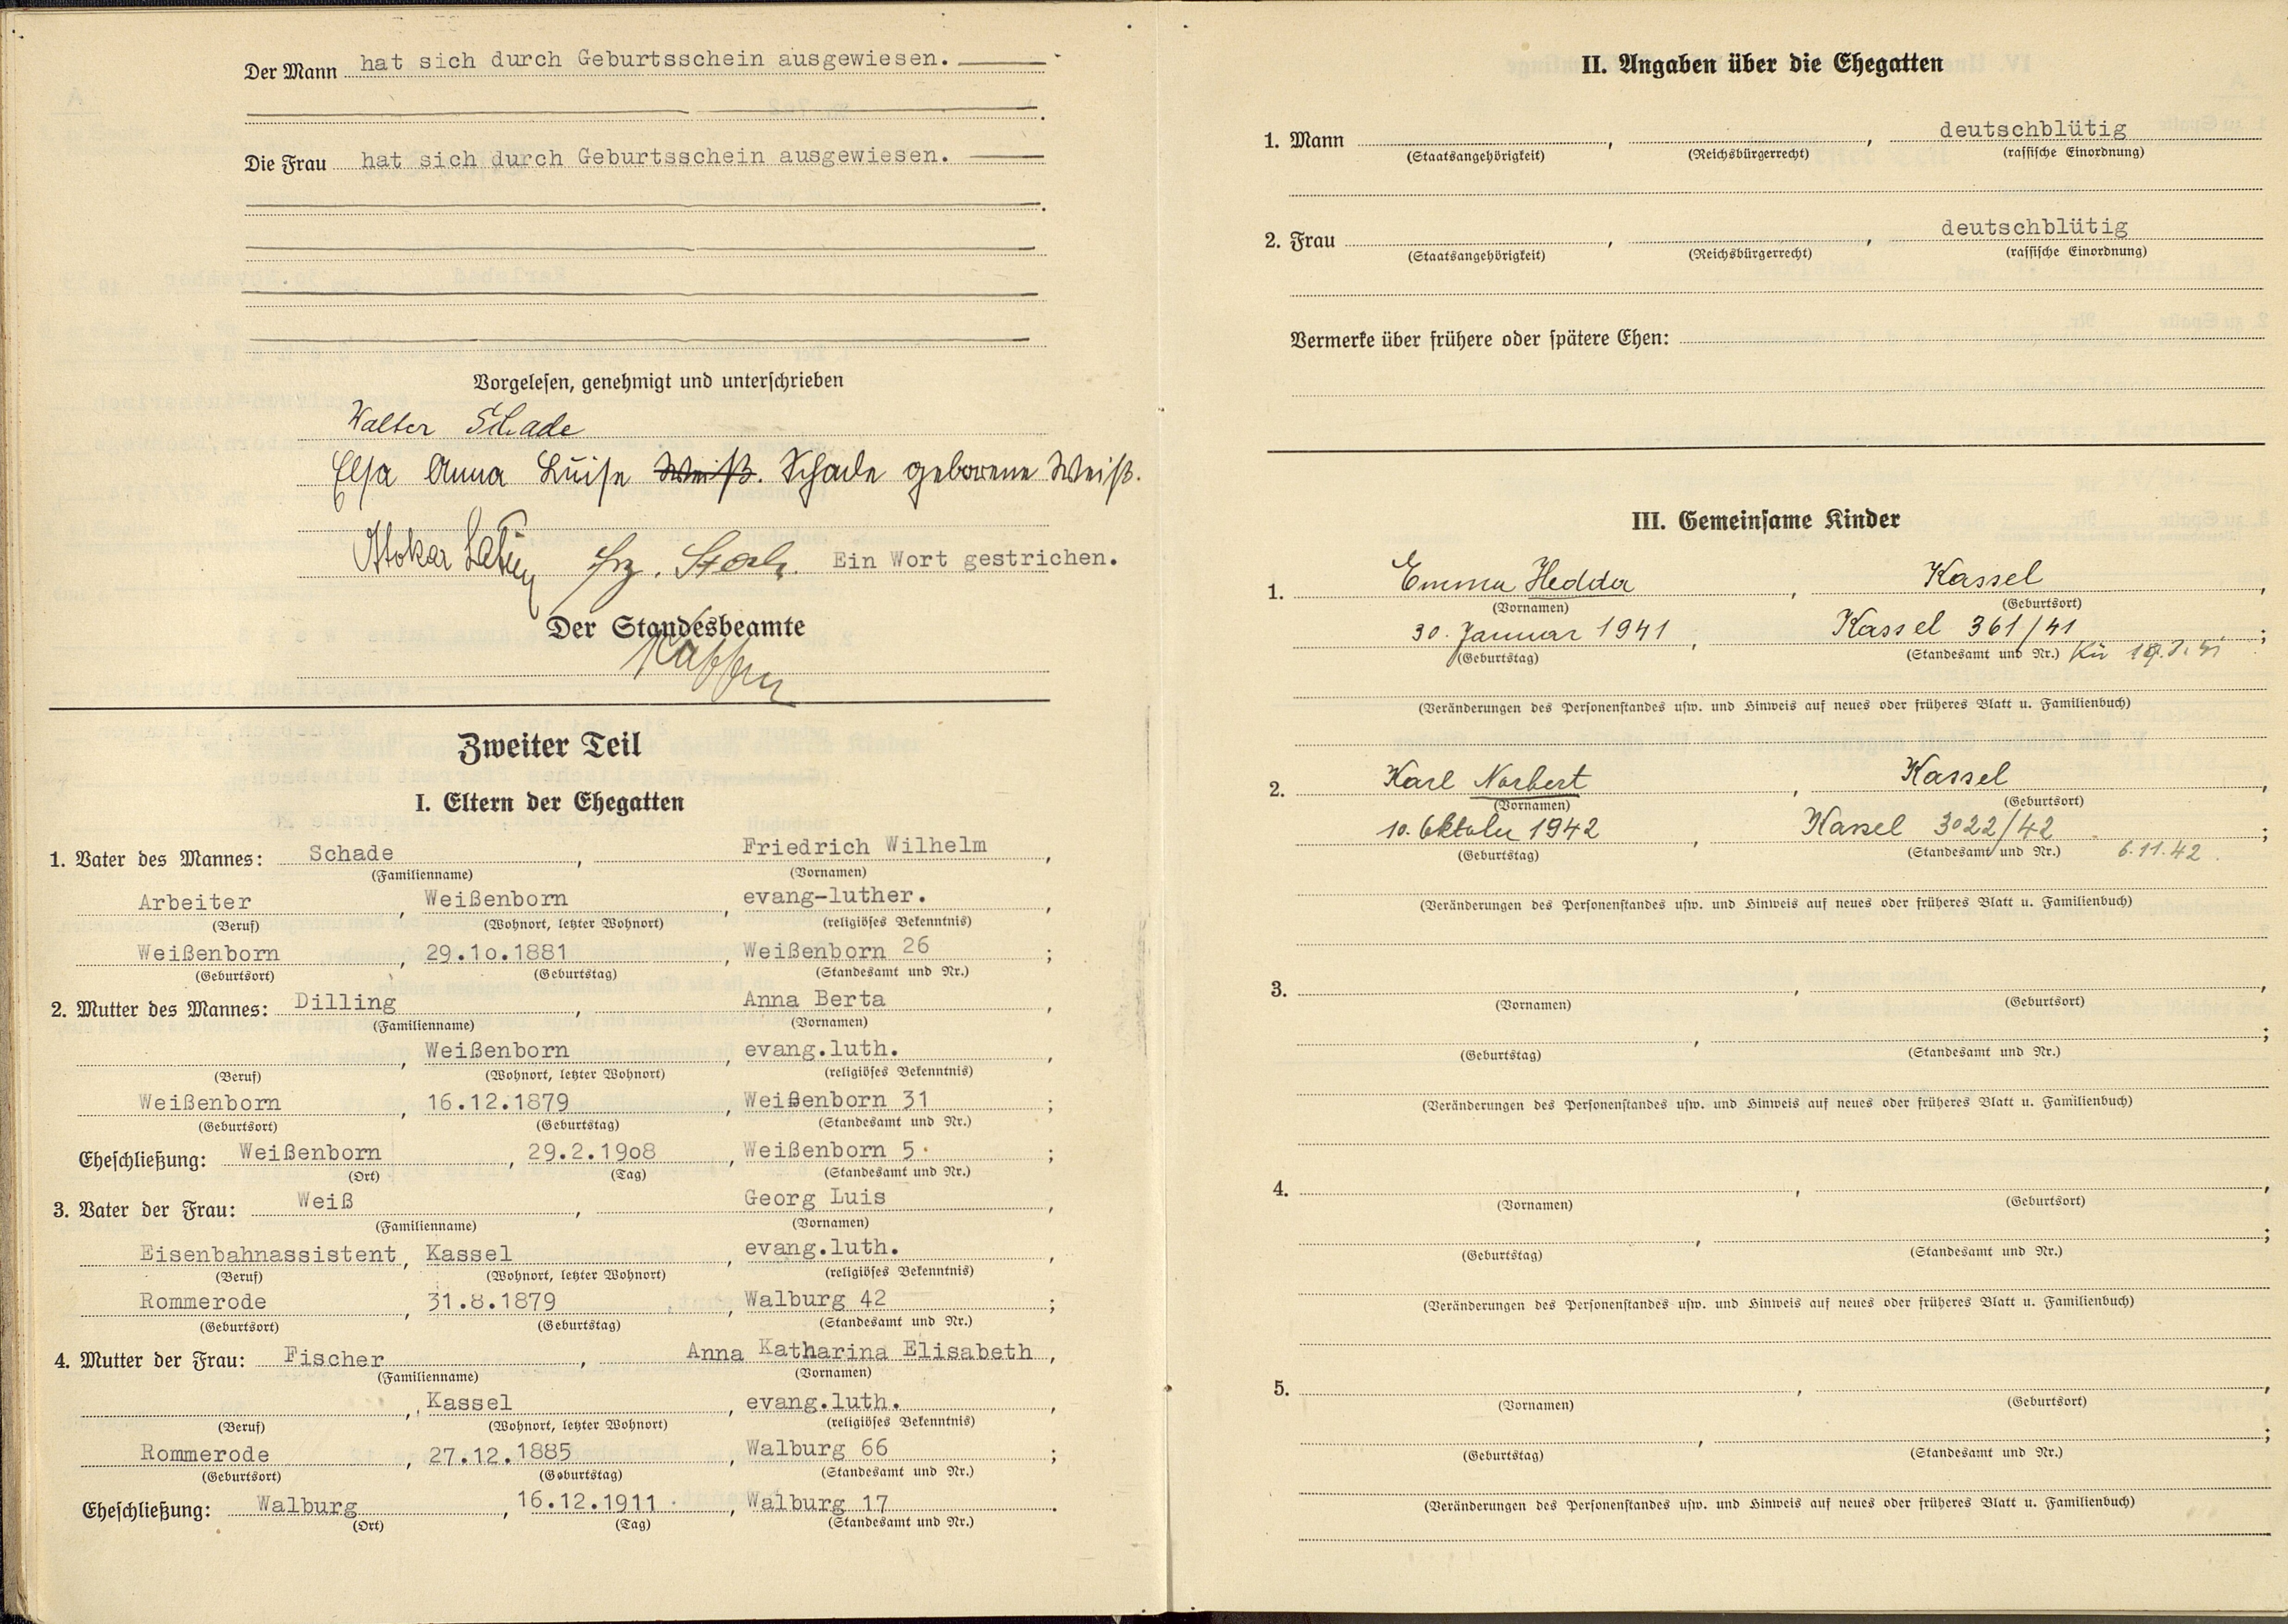 Der Mann hat sich durch Geburtsschein ausgewiesen.
Die Frau hat sich durch Geburtsschein ausgewiesen.
Vorgelesen, genehmigt und unterschrieben
Walter Schade
Elsa Anna Luise Weiß. Schade geborene Weiß.
Ein Wort gestrichen.
Der Standesbeamte
Zweiter Teil
I. Eltern der Ehegatten
1. Vater des Mannes: Schade, Friedrich Wilhelm,
(Familienname) (Vornamen)
Arbeiter, Weißenborn, evang-luther.,
(Beruf) (Wohnort, letzter Wohnort) (religiöses Bekenntnis)
Weißenborn, 29.1o.1881, Weißenborn 26;
(Geburtsort) (Geburtstag) (Standesamt und Nr.)
2. Mutter des Mannes: Dilling, Anna Berta,
(Familienname) (Vornamen)
, Weißenborn, evang.luth.,
(Beruf) (Wohnort, letzter Wohnort) (religiöses Bekenntnis)
Weißenborn, 16.12.1879, Weißenborn 31;
(Geburtsort) (Geburtstag) (Standesamt und Nr.)
Eheschließung: Weißenborn, 29.2.19o8, Weißenborn 5.;
(Ort) (Tag) (Standesamt und Nr.)
3. Vater der Frau: Weiß, Georg Luis,
(Familienname) (Vornamen)
Eisenbahnassistent, Kassel, evang.luth.,
(Beruf) (Wohnort, letzter Wohnort) (religiöses Bekenntnis)
Rommerode, 31.8.1879, Walburg 42;
(Geburtsort) (Geburtstag) (Standesamt und Nr.)
4. Mutter der Frau: Fischer, Anna Katharina Elisabeth,
(Familienname) (Vornamen)
, Kassel, evang.luth.,
(Beruf) (Wohnort, letzter Wohnort) (religiöses Bekenntnis)
Rommerode, 27.12.1885, Walburg 66;
(Geburtsort) (Geburtstag) (Standesamt und Nr.)
Eheschließung: Walburg, 16.12.1911, Walburg 17.
(Ort) (Tag) (Standesamt und Nr.)
II. Angaben über die Ehegatten
1. Mann , , deutschblütig
(Staatsangehörigkeit) (Reichsbürgerrecht) (rassische Einordnung)
2. Frau , , deutschblütig
(Staatsangehörigkeit) (Reichsbürgerrecht) (rassische Einordnung)
Vermerke über frühere oder spätere Ehen:
III. Gemeinsame Kinder
1. Emma Hedda, Kassel,
(Vornamen) (Geburtsort)
30. Januar 1941, Kassel 361/41;
(Geburtstag) (Standesamt und Nr.)
(Veränderungen des Personenstandes usw. und Hinweis auf neues oder früheres Blatt u. Familienbuch)
2. Karl Norbert, Kassel,
(Vornamen) (Geburtsort)
10. Oktober 1942, Kassel 3022/42;
(Geburtstag) (Standesamt und Nr.) 6.11.42.
(Veränderungen des Personenstandes usw. und Hinweis auf neues oder früheres Blatt u. Familienbuch)
3. , ,
(Vornamen) (Geburtsort)
, ;
(Geburtstag) (Standesamt und Nr.)
(Veränderungen des Personenstandes usw. und Hinweis auf neues oder früheres Blatt u. Familienbuch)
4. , ,
(Vornamen) (Geburtsort)
, ;
(Geburtstag) (Standesamt und Nr.)
(Veränderungen des Personenstandes usw. und Hinweis auf neues oder früheres Blatt u. Familienbuch)
5. , ,
(Vornamen) (Geburtsort)
, ;
(Geburtstag) (Standesamt und Nr.)
(Veränderungen des Personenstandes usw. und Hinweis auf neues oder früheres Blatt u. Familienbuch)